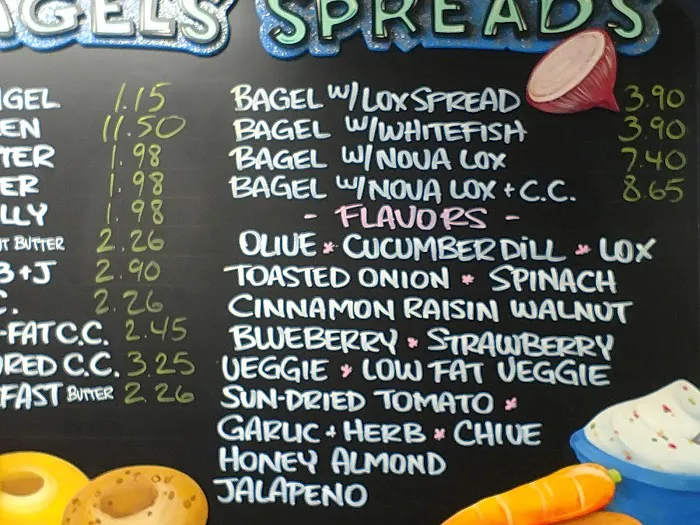 AGELS SPREADS
AGEL 1.15
EN 11.50
TER 1.98
ER 1.98
LLY 1.98
UT BUTTER 2.26
B+J 2.90
C. 2.26
-FAT C.C. 2.45
RED C.C. 3.25
FAST BUTTER 2.26
BAGEL W/LOX SPREAD 3.90
BAGEL W/WHITEFISH 3.90
BAGEL W/NOVA LOX 7.40
BAGEL W/NOVA LOX + C.C. 8.65
- FLAVORS -
OLIVE * CUCUMBER DILL * LOX
TOASTED ONION * SPINACH
CINNAMON RAISIN WALNUT
BLUEBERRY * STRAWBERRY
VEGGIE * LOW FAT VEGGIE
SUN-DRIED TOMATO *
GARLIC + HERB * CHIVE
HONEY ALMOND
JALAPENO